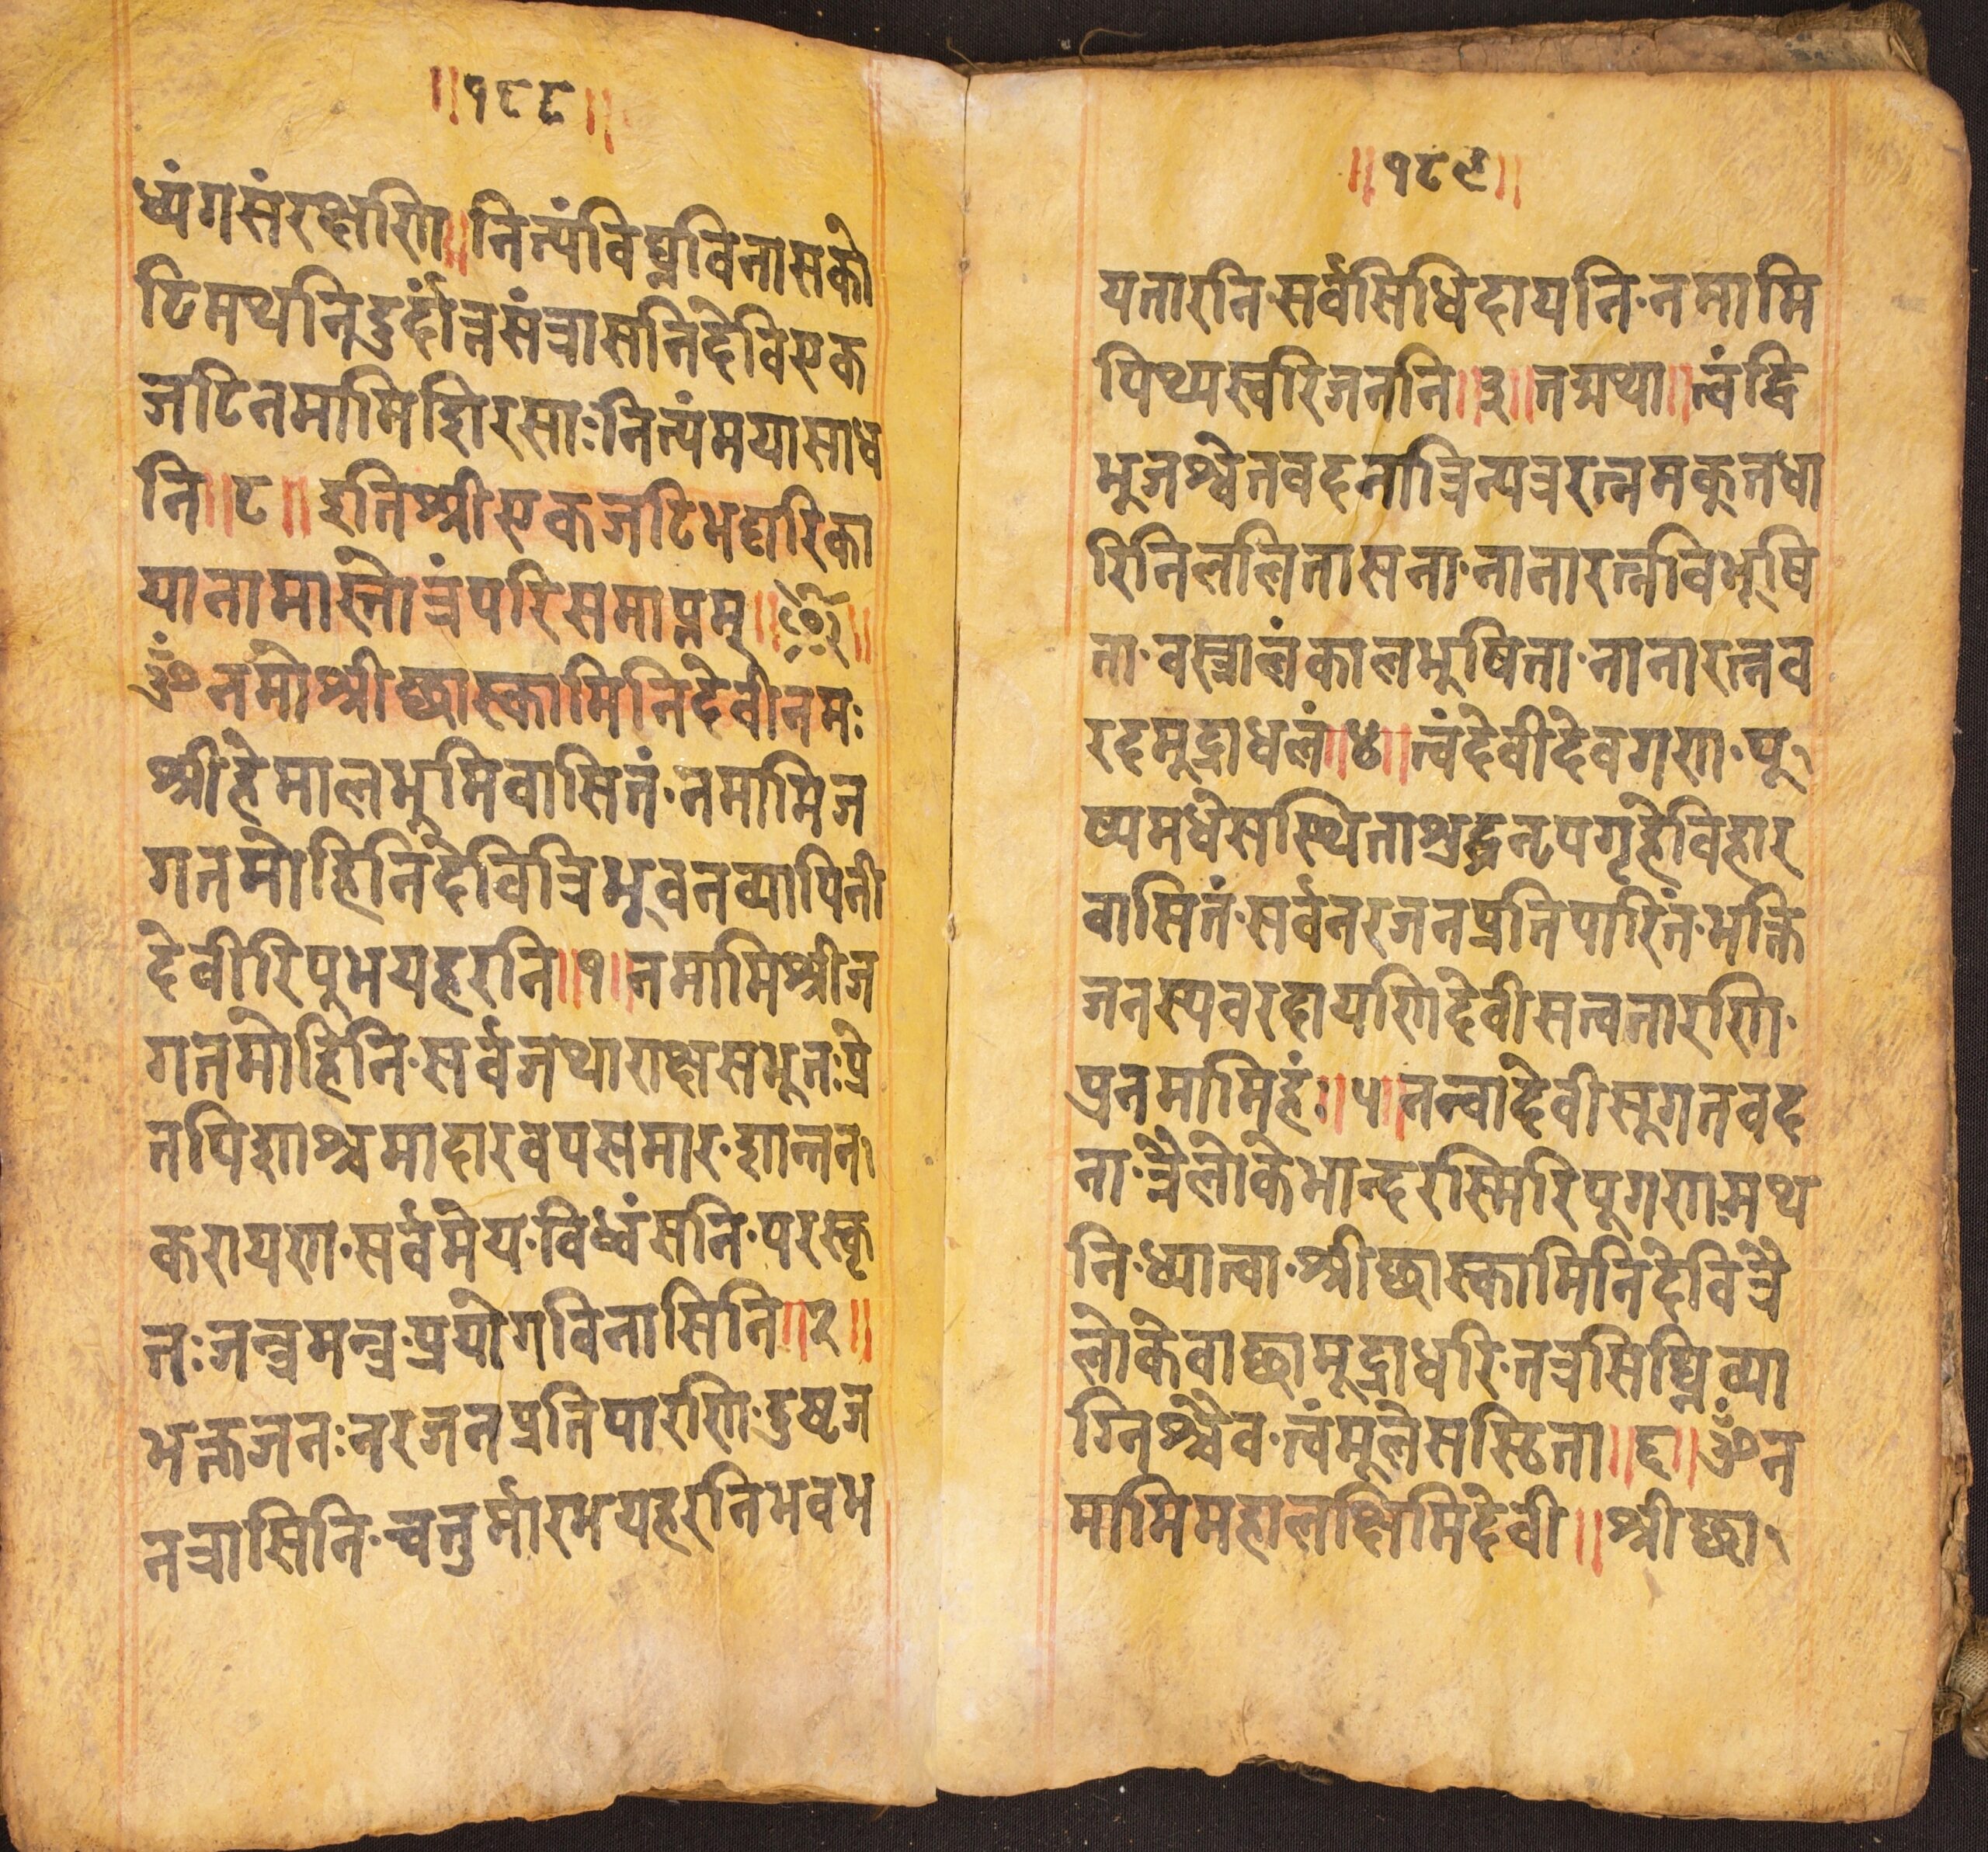 ॥१८८॥
ध्यंगसंरक्षणि॥नित्यंविघ्नविनासको
टिमथनिदुर्दांन्नसंत्रासनिदेविएक
जटिनमामिशिरसाःनित्यंमयासाध
नि॥८॥इतिश्रीएकजटिभट्टारिका
यानामास्तोत्रंपरिसमाप्तम्॥॥
ॐनमोश्रीछ्वास्कामिनिदेवीनमः
श्रीहेमालभुमिवासितं·नमामिज
गतमोहिनिदेवित्रिभूवनव्यापिनी
देवीरिपुभयहरनि॥१॥नमामिश्रीज
गतमोहिनि·सर्वजथाराक्षसभूतःप्रे
तपिशाश्चमादारवपसमार·शान्तन
करायण·सर्वमेय·विध्वंसनि·परस्कृ
तःजन्त्रमन्त्र·प्रयोगविनासिनि॥२॥
भक्तजनःनरजनप्रतिपारणि·दुष्टज
नत्रासिनि·चतुर्मारभयहरनिभवभ
॥१८९॥
यतारनि·सर्वसिधिदायनि·नमामि
पिथ्यस्वरिजननि॥३॥तद्यथा॥त्वंद्वि
भुजश्वेतवदनात्रिन्यत्ररत्नमकुतधा
रिनिललितासना·नानारत्नविभूषि
ता·वस्त्रालंकालभुषिता·नानारत्नव
रदमूद्राधलं॥४॥त्वंदेवीदेवगण·पू
ष्यमधेसस्थिताश्रद्धनृपगृहेविहार
वासितं·सर्वनरजनप्रतिपारितं·भक्ति
जनस्यवरदायणिदेवीसत्वतारणि·
प्रनमामिहंः॥५॥तत्वादेवीसूगतवद
ना·त्रैलोकेभान्दरस्मिरिपूगणमथ
नि·ध्यात्वा·श्रीछ्वास्कामिनिदेवित्रै
लोकेवाछ्वामूद्राधरि·तत्रसिद्धिव्या
ग्निश्चैव·त्वंमूलेसस्ठिता॥६॥ॐन
मामिमहालक्षिमिदेवी॥श्रीछ्वा